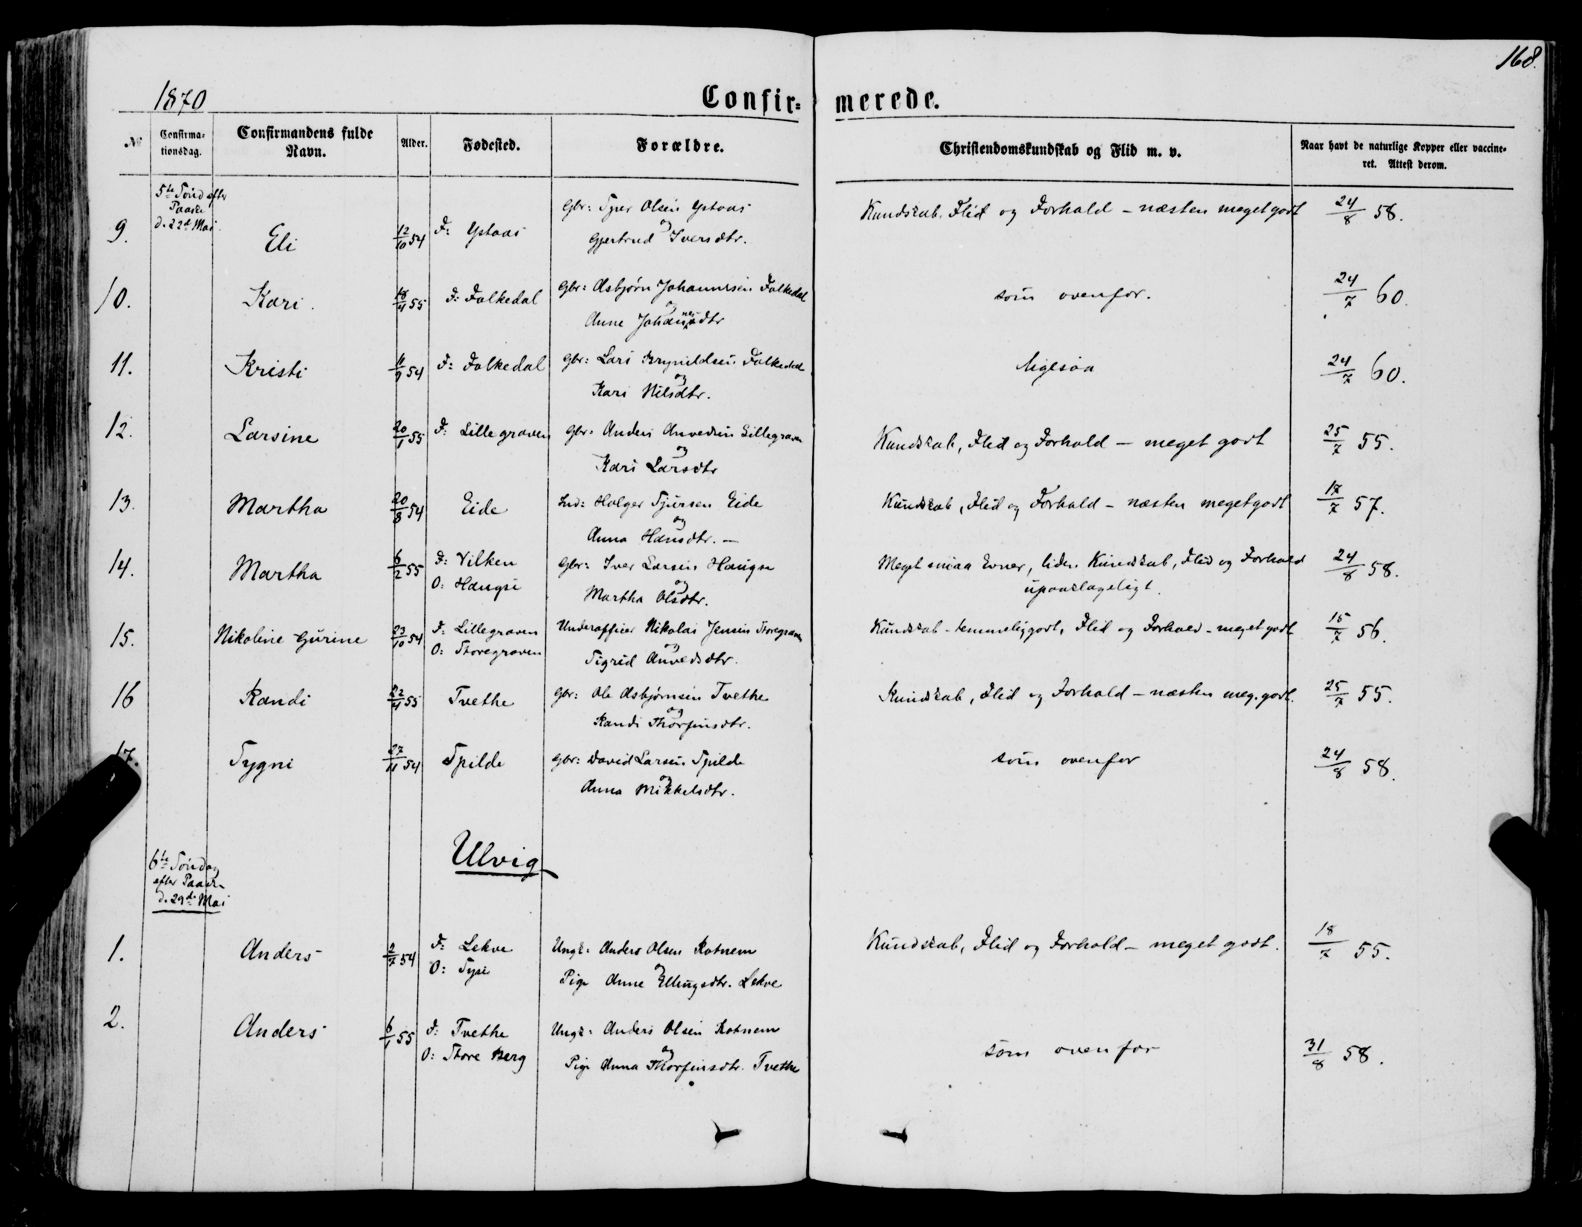 168.
1870
Confir= merede.
№
Confirma-
tionsdag.
Confirmandens fulde
Navn.
Alder.
Fødested.
Forældre.
Christendomskundskab og Flid m. v.
Naar havt de naturlige Kopper eller vaccine-
ret. Attest derom.
5te Sønd efter
Paaske
d. 22de Mai
9. Eli 12/10 54 F: Ystaas Gbr: Sjur Olsen Ystaas
og
Gjertrud Iversdtr.
Kundskab, Flid og Forhold – næsten meget godt 24/8 58.
10. Kari. 18/4 55 F: Folkedal Gbr: Asbjørn Johannesen Folkedal
og
Anne Johannesdtr
som ovenfor. 24/7 60.
11. Kristi 11/9 54 F: Folkedal Gbr: Lars Brynildsen Folkedal
og
Kari Nilsdtr.
ligesaa 24/7 60.
12. Larsine 20/1 55 F: Lillegraven Gbr. Anders Anvedsen Lillegraven
og
Kari Larsdtr
Kundskab, Flid og Forhold – meget godt 25/7 55.
13. Martha 20/8 54 Eide Ind: Holger Sjursen Eide
og
Anna Hansdtr. –
Kundskab, Flid og Forhold – næsten meget godt 17/7 57.
14. Martha 6/2 55 F: Vilken
O: Haugse
Gbr: Iver Larsen Haugse
og
Martha Olsdtr.
Meget smaa Evner, liden Kundskab, Flid og Forhold
upaaklageligt. 24/8 58.
15. Nikoline Gurine 23/10 54 F: Lillegraven
O: Storegraven
Underofficer Nikolai Jensen Storegraven
og
Sigrid Anvedsdtr.
Kundskab – temmelig godt, Flid og Forhold – meget godt 15/7 56.
16 Randi 22/4 55 Tvethe Gbr: Ole Asbjørnsen Tvethe
og
Randi Thorfinsdtr.
Kundskab, Flid og Forhold – næsten meg. godt. 25/7 55.
17. Sygni 27/11 54 Spilde Gbr: David Larsen Spilde
og
Anna Mikkelsdtr.
som ovenfor 24/8 58.
Ulvig
6te Søndag
efter Paaske
d. 29de Mai
1. Anders 2/7 54 F: Lekve
O: Syse
Ungk: Anders Olsen Kotnem
og
Pige Anne Ellingsdtr. Lekve
Kundskab, Flid og Forhold – meget godt. 18/7 55.
2. Anders 6/1 55 F: Tvethe
O: Store Berg
Ungk: Anders Olsen Kotnem
og
Pige Anna Thorfinsdtr. Tvethe
som ovenfor 31/8 58.